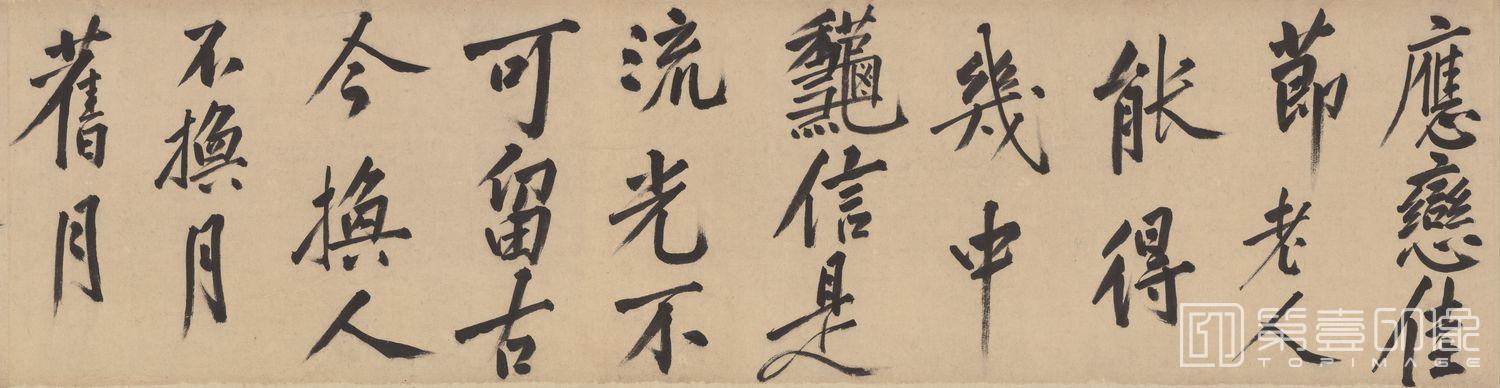 應戀佳
莭老人
能得
幾中
龝信是
流光不
可留古
今換人
不換月
舊月
第壹印象
TOPIMAGE